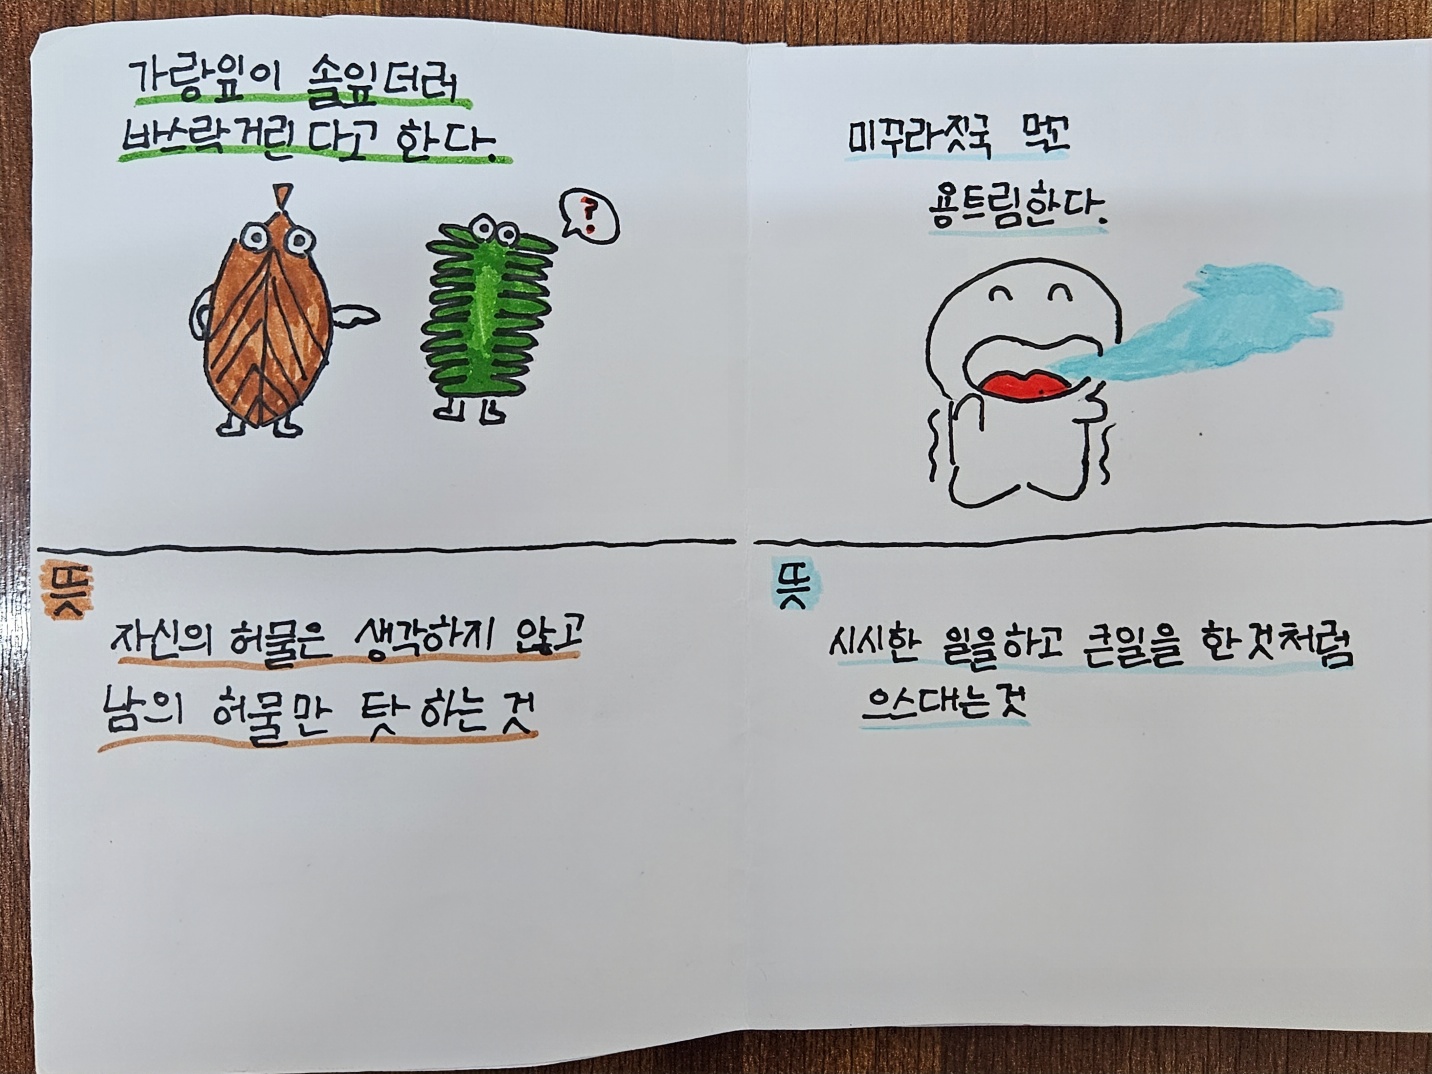 가랑잎이 솔잎더러
바스락거린다고 한다.
?
뜻
자신의 허물은 생각하지 않고
남의 허물만 탓 하는 것
미꾸라짓국 먹고
용트림한다.
뜻
시시한 일을하고 큰일을 한것처럼
으스대는것